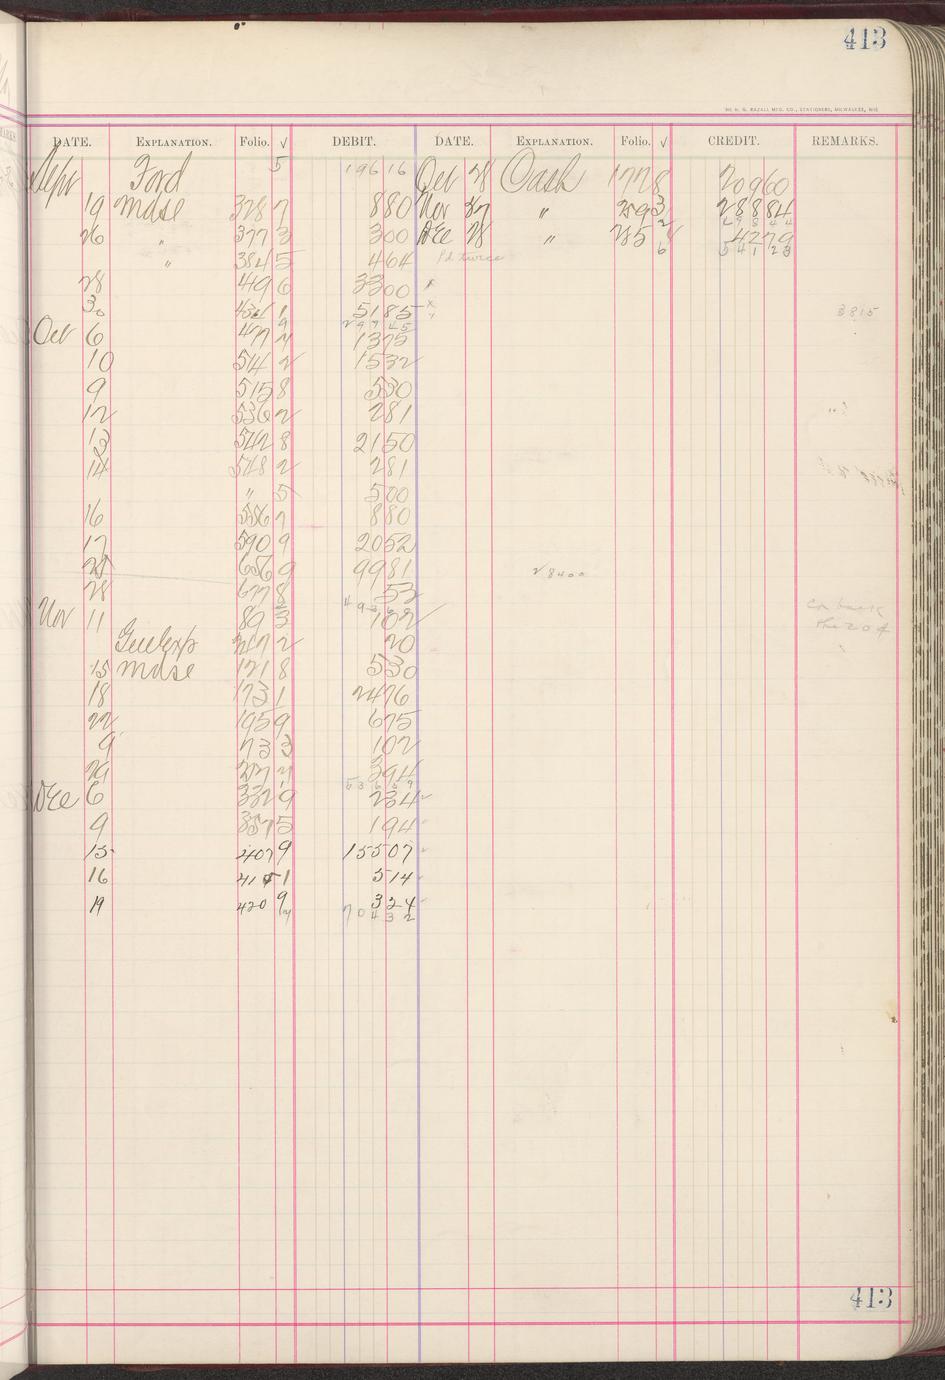 413
THE H. G. RAZALL MFG. CO., STATIONERS, MILWAUKEE, WIS
DATE. EXPLANATION. Folio. √ DEBIT. DATE. EXPLANATION. Folio. √ CREDIT. REMARKS.
Sept Ford 5 196 16 Oct 28 Cash 177 8 209 60
19 mdse 328 7 8 80 Nov 27 " 293 288 84
26 " 377 3 3 00 Dec 28 " 285 42 79
" 384 5 4 64 Pd twice 6 541 23
28 419 6 33 00
30 1 51 85 3815
297 45
Oct 6 477 13 75
10 514 2 15 32
9 515 8 5 30
12 536 2 2 81
13 542 8 21 50
14 548 2 2 81
" 5 5 00
16 556 7 8 80
17 590 9 20 52
656 9 99 81 28400
28 677 8 53
Nov 11 89 3 1 02
Genl exp 2 20
15 mdse 121 8 5 30
18 173 1 24 76
22 195 9 6 75
9 73 3 1 02
29 3 94
Dec 6 332 9 2 34
9 357 5 1 94
15 407 9 155 07
16 41 1 5 14
19 420 9 3 24
704 32
413